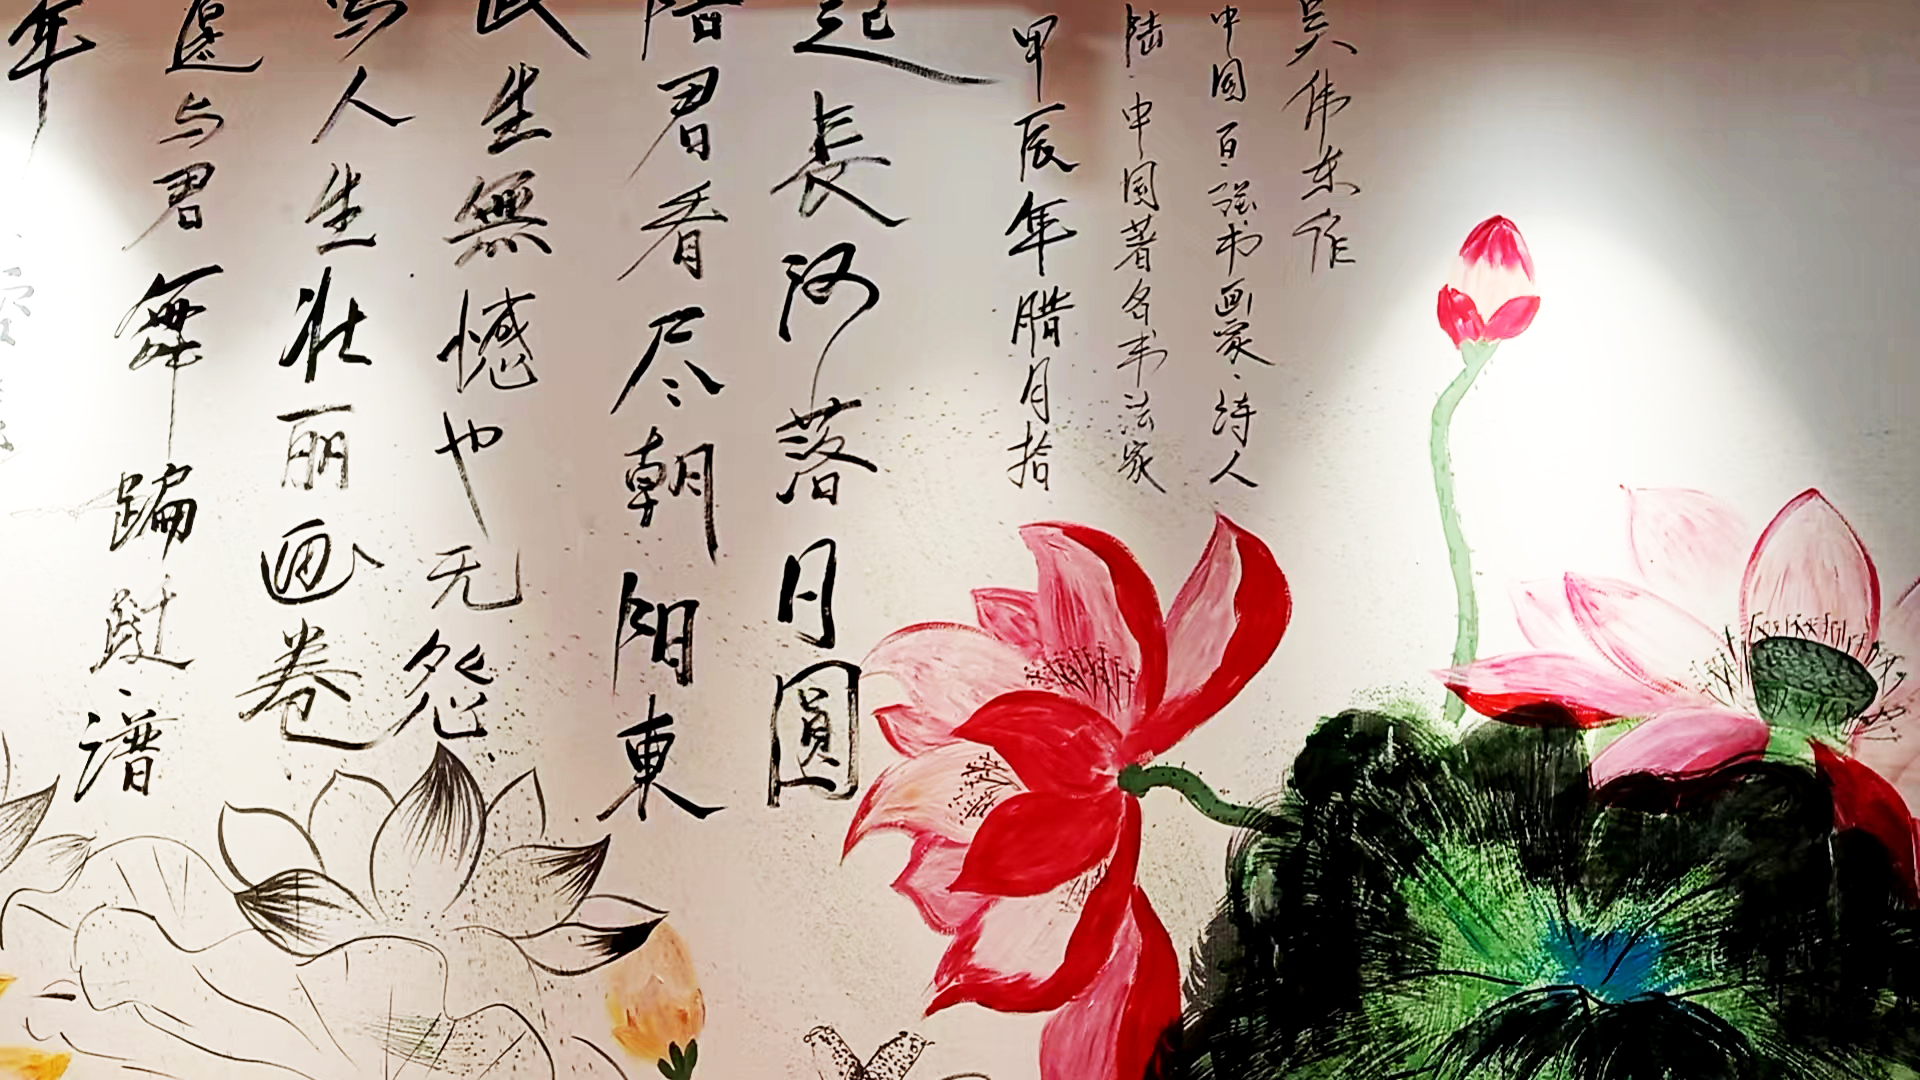 年
還与君舞蹁跹·谱
写人生壮丽画卷
生無憾也无怨
陪君看尽朝阳東
起長河落月圓
甲辰年腊月拾
陆·中国著名书法家
中国百强书画家、诗人
吴伟东作